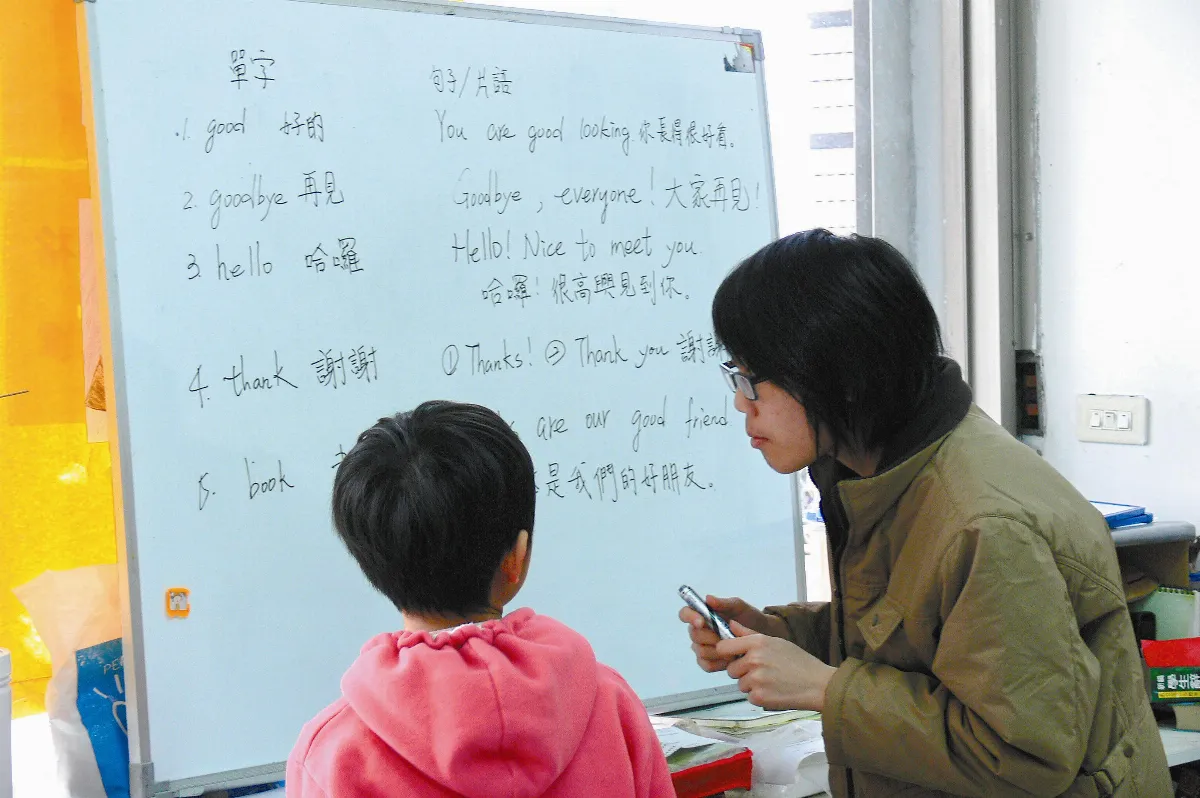 單字
句子/片語
1. good 好的
You are good looking. 你長得很好看。
2. goodbye 再見
Goodbye, everyone! 大家再見!
3. hello 哈囉
Hello! Nice to meet you.
哈囉! 很高興見到你。
4. thank 謝謝
① Thanks! ② Thank you 謝謝
are our good friend
5. book
是我們的好朋友。
學生